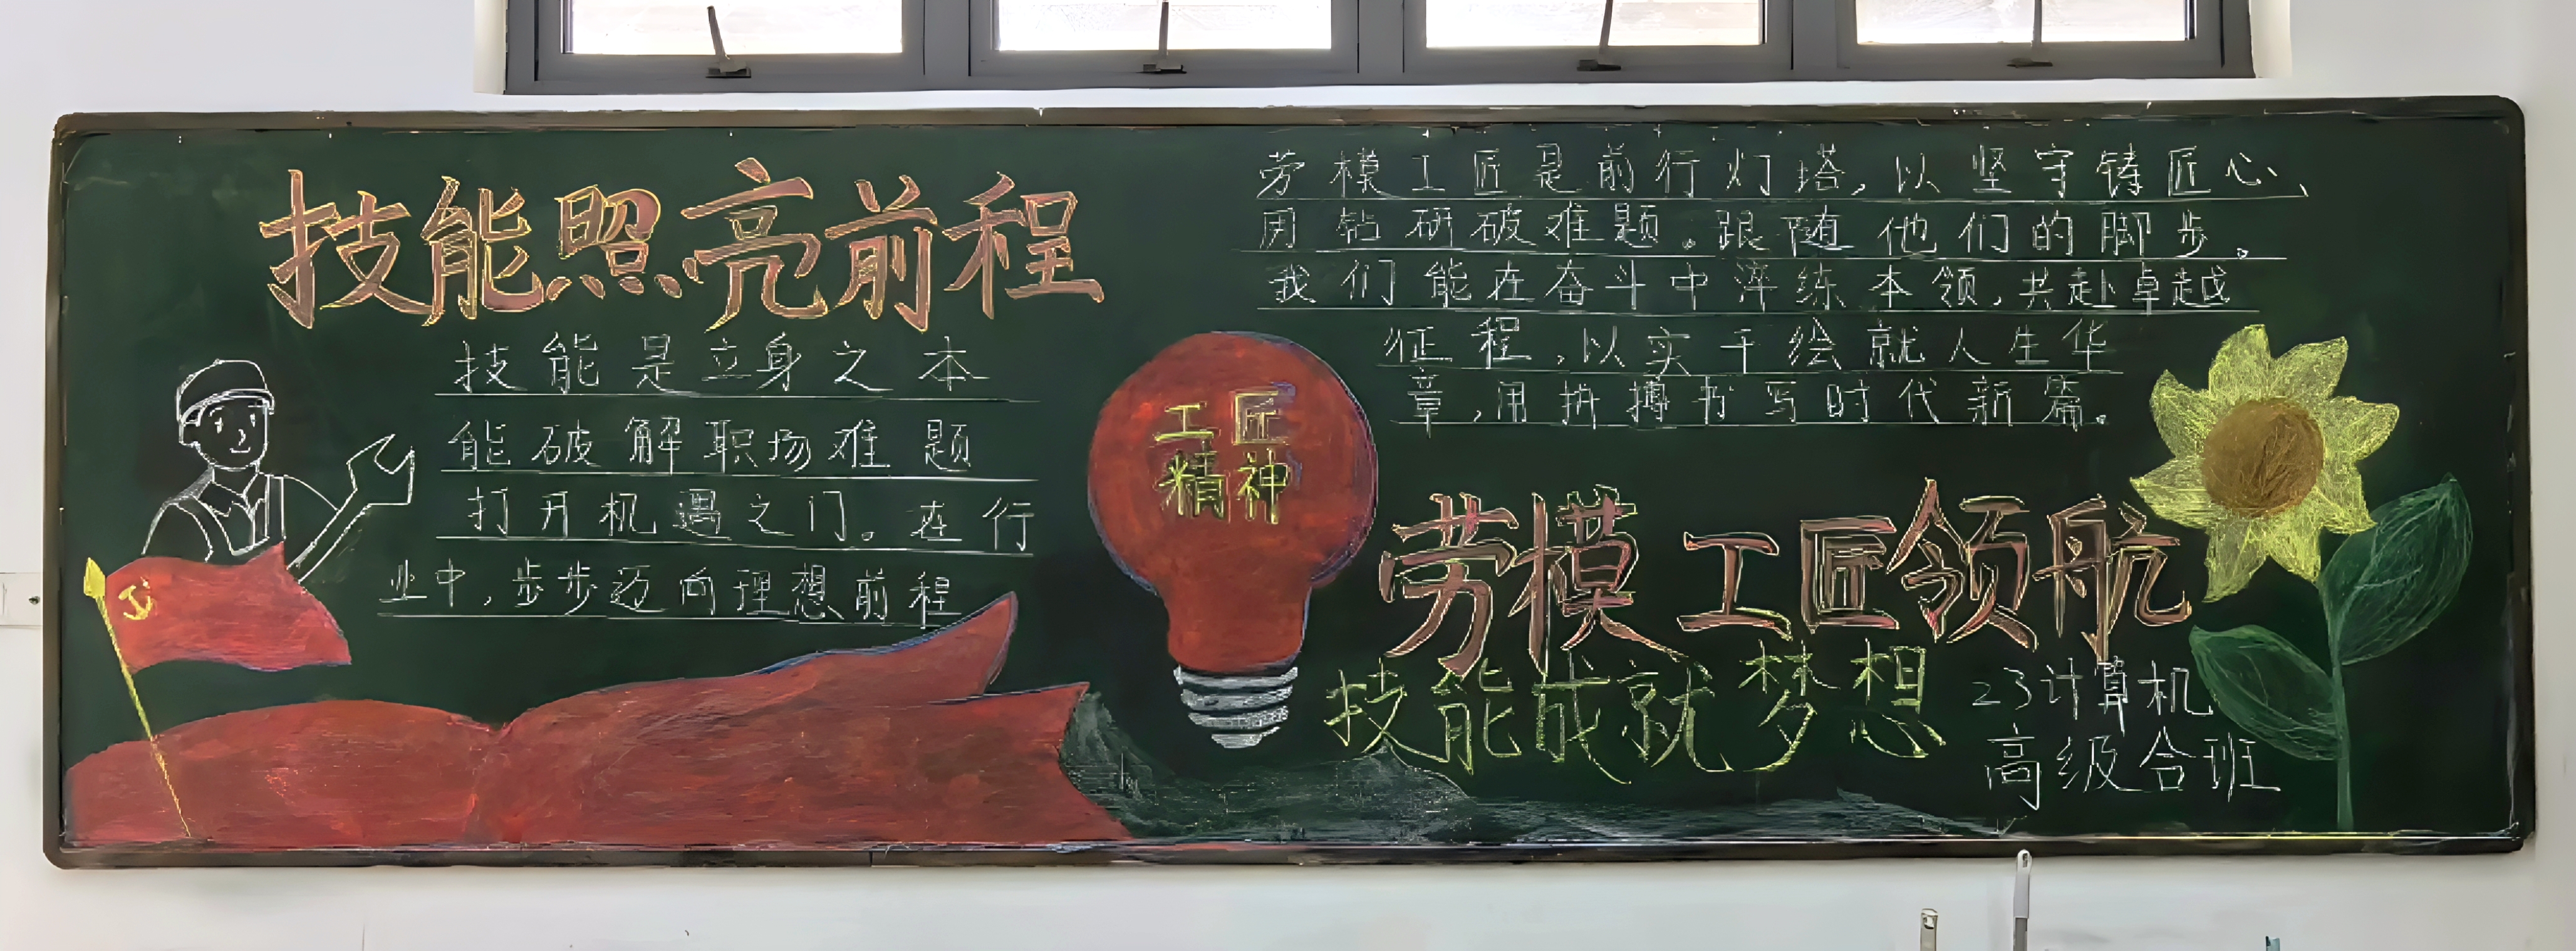 技能照亮前程
技能是立身之本
能破解职场难题
打开机遇之门。在行
业中,步步迈向理想前程
工匠
精神
劳模工匠是前行灯塔,以坚守铸匠心、
用钻研破难题。跟随他们的脚步。
我们能在奋斗中淬练本领,共赴卓越
征程,以实干绘就人生华
章,用拼搏书写时代新篇。
劳模工匠领航
技能成就梦想
23计算机
高级合班